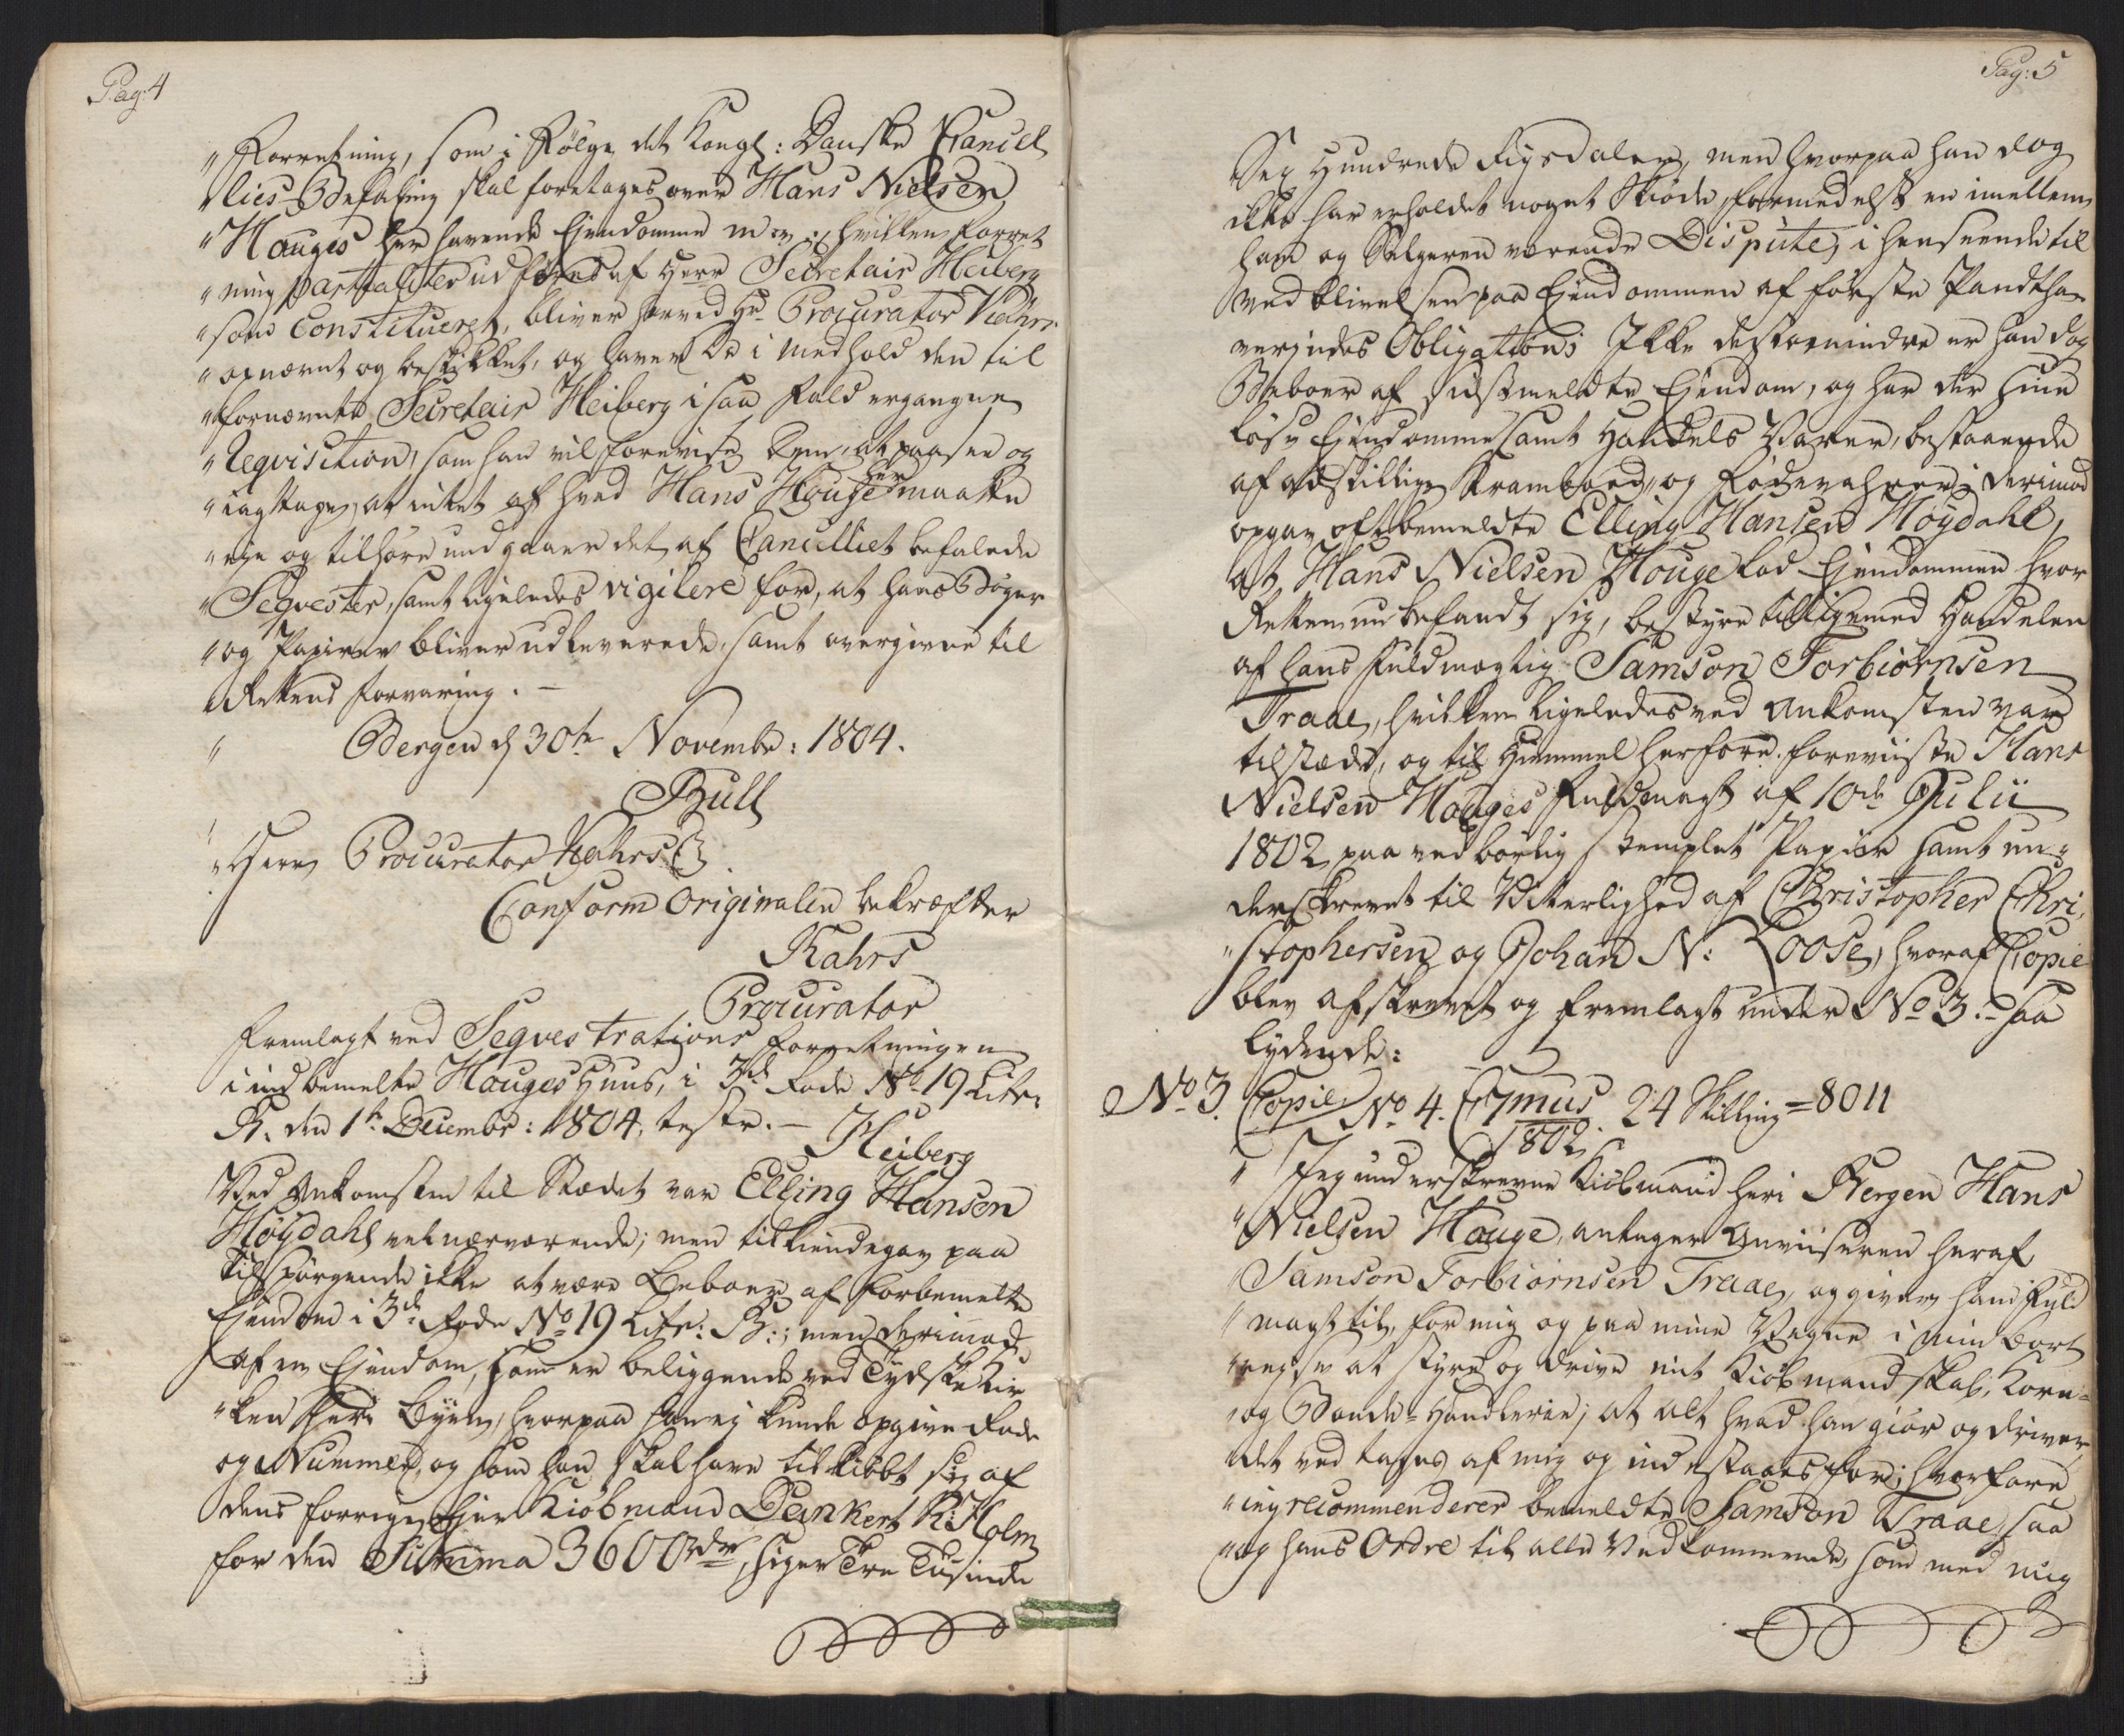 Pag: 4
" Forretning, som i Fölge det Kongl: Danske Cancel
" lies Befaling skal foretages over Hans Nielsen
" Houges her havende Ejendomme m: v:, hvilken Forret
" ning partialiter udföres af Herr Secretair Heiberg
" som Constitueret, bliver herved Hr Procurator Kahrs
" opnævnt og beskikket, og haver De i Medhold den til
" fornævnte Secretair Heiberg i saa Fald ergangne
" Reqvisition, som han vil forevise Dem, at paasee og
" iagttage, at intet af hvad Hans Houge her maatte
" eje og tilhöre undgaaer det af Cancelliet befalede
" Seqvester, samt ligeledes vigilere for, at hans Böger
" og Papirer bliver udleverede, samt overgivne til
" Rettens Forvaring. —
" Bergen d 30te Novembr: 1804.
Bull
" Herr Procurator Kahrs
Conform Originalen bekræfter
Kahrs
Procurator
Fremlagt ved Seqvestrations Forretningen
i indbemelte Houges Huus, i 3de Rode No 19 Litr:
B. den 1te Decembr: 1804, testr. —
Heiberg
Ved Ankomsten til Stædet var Elling Hansen
Höydahl vel nærværende; men tilkiendegav paa
Tilspörgende ikke at være Beboer af forbemelte
Ejendom i 3de Rode No 19 Litr: B:; men derimod
af en Ejendom, som er beliggende ved Tydske Kir
" ken her i Byen, hvorpaa han ej kunde opgive Rode
og Nummer, og som han skal have tilkiöbt sig af
dens forrige Ejer Kiöbmand Denkert K: Holm
for den Summa 3600rdr, siger Tre Tusinde
Pag: 5
Sex Hundrede Rigsdaler, men hvorpaa han dog
ikke har erholdet noget Skiöde, formedelst en imellem
ham og Sælgeren værende Dispute, i Henseende til
Vedblivelsen paa Ejendommen af förste Pandtha
verindes Obligations. Ikke destomindre er han dog
Beboer af sidstmeldte Ejendom, og har der sine
löse Ejendomme samt Handels Varer, bestaaende
af adskillige Kramboed, og Födevahrer; derimod
opgav oftbemeldte Elling Hansen Höydahl,
at Hans Nielsen Houge lod Ejendommen hvor
Retten nu befandt sig, bestyre tilligemed Handelen
af hans Fuldmægtig Samson Torbiörnsen
Traae, hvilken ligeledes ved Ankomsten var
tilstæde, og til Hiemmel herfore foreviiste Hans
Nielsen Houges Fuldmagt af 10de Julii
1802 paa vedbörlig stemplet Papiir samt un¬
derskrevet til Vitterlighed af Christopher Chri
" stophersen og Johan N: Loose, hvoraf Copie
blev afskrevet og fremlagt under No 3. saa
lydende:
No 3. Copie No 4. C7mus 24 Skilling = 8011
1802.
" Jeg underskrevne Kiöbmand her i Bergen Hans
" Nielsen Houge, antager Anviiseren heraf
" Samson Torbiörnsen Traae, og giver ham Fuld
" magt til, for mig og paa mine Vegne i min Bort
" rejse at styre og drive mit Kiöbmandskab, Korn-
" og Bonde-Handlerie; at alt hvad han giör og driver,
" det vedtages af mig og indestaaes for; hvorfore
" jeg recommenderer bemeldte Samson Traae, saa
" og hans Ordre til alle Vedkommende, som med mig